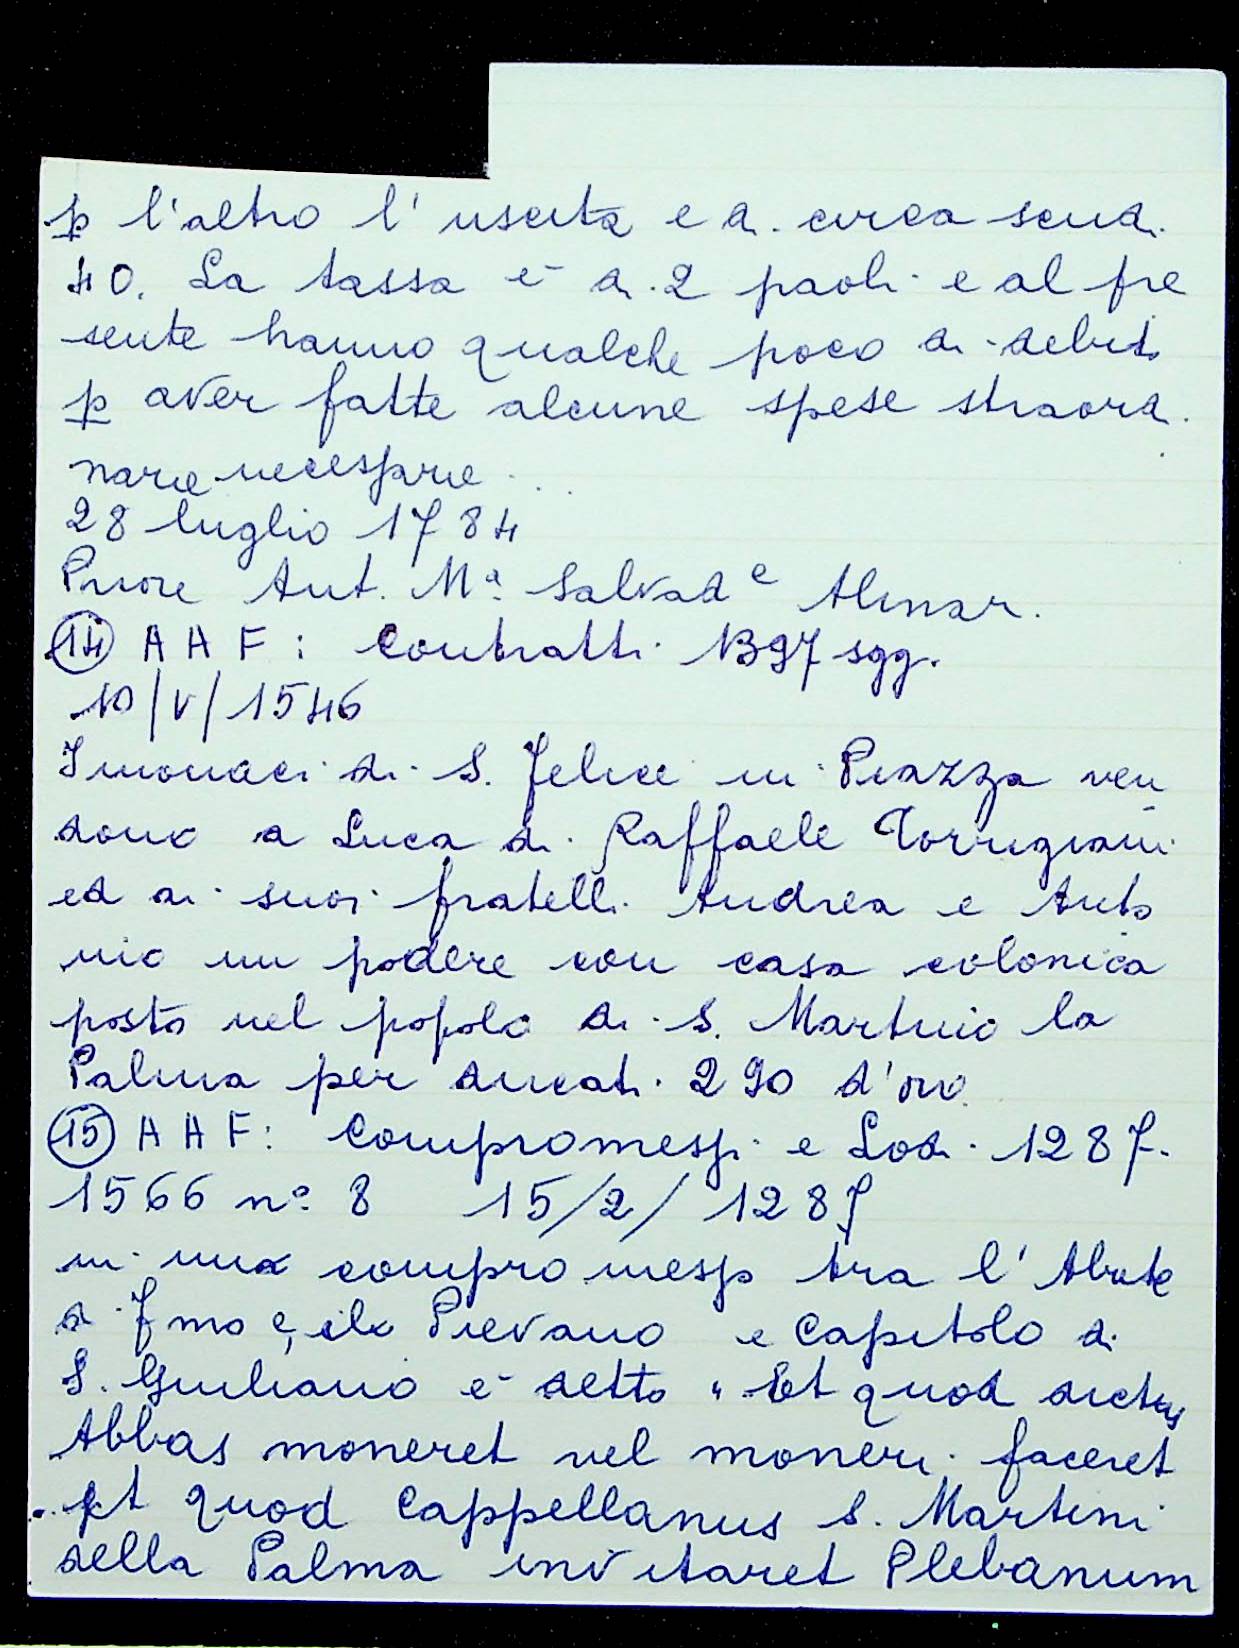 p l'altro l'uscita e di circa scudi
40. La tassa è di 2 paoli e al pre
sente hanno qualche poco di debito
p aver fatte alcune spese straordi
narie necessarie ...
28 luglio 1784
Priore Ant. Mª Salvad e
(14) A A F: Contratti 1397 sgg.
10/V/1546
I monaci di S. Felice in Piazza ven
dono a Luca di Raffaele Torrigiani
ed ai suoi fratelli Andrea e Anto
nio un podere con casa colonica
posto nel popolo di S. Martino la
Palma per ducati 290 d'oro
(15) A A F: Compromessi e Lodi 1287-
1566 nº 8 15/2/1287
in una compromesso tra l'Abate
di e il Pievano e Capitolo di
S. Giuliano è detto "Et quod dictus
Abbas moneret vel moneri faceret
et quod Cappellanus S. Martini
della Palma invitaret Plebanum